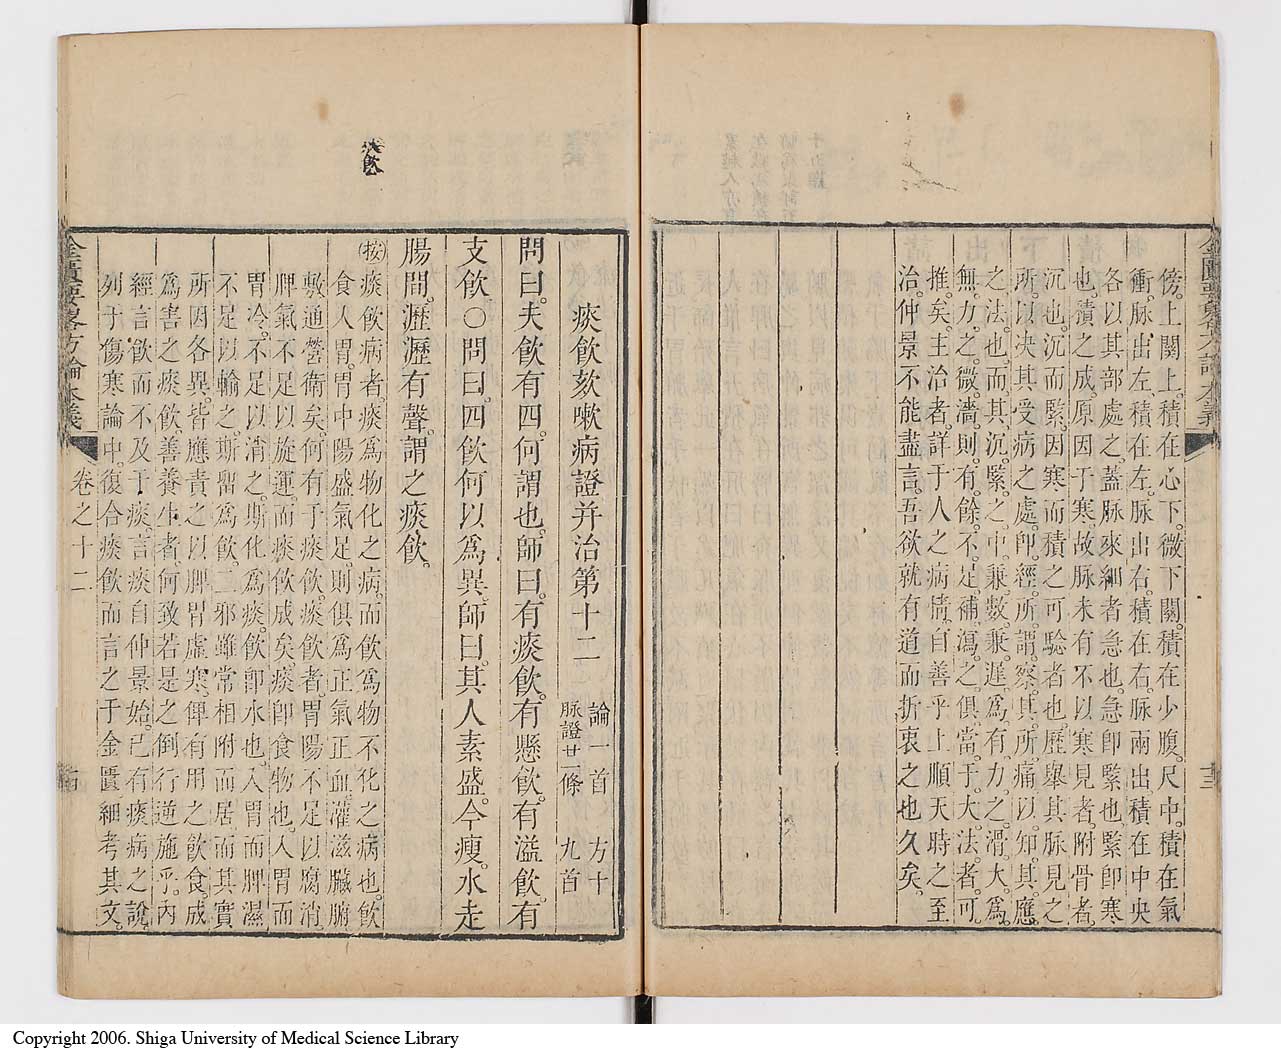 傍。上關上。積在心下。微下關。積在少腹。尺中。積在氣
衝。脉出左。積在左。脉出右。積在右。脉兩出。積在中央
各以其部處之。蓋脉來細者急也。急卽緊也。緊卽寒
也。積之成。原因于寒。故脉未有不以寒見者。附骨者。
沉也。沉而緊。因寒而積之可騐者也。歷舉其脉見之
所。以决其受病之處。卽經所謂察其所痛。以知其應
之法也。而其沉緊之中。兼數兼遲。爲有力之滑大。爲
無力之微濇。則有餘不足。補瀉之。俱當于大法者。可
推矣。主治者。詳于人之病情。自善乎上順天時之至
治。仲景不能盡言。吾欲就有道而折衷之也久矣。
十三
痰飲
痰飲欬嗽病證并治第十二
論一首 方十
脉證廿一條 九首
問曰。夫飲有四。何謂也。師曰。有痰飲。有懸飲。有溢飲。有
支飲〇問曰。四飲何以爲異。師曰。其人素盛。今瘦。水走
腸間。瀝瀝有聲。謂之痰飲。
㊑痰飲病者。痰爲物化之病。而飲爲物不化之病也。飲
食入胃。胃中陽盛氣足。則俱爲正氣正血。灌滋臟腑
敷通營衛矣。何有于痰飲。痰飲者。胃陽不足以腐消。
脾氣不足以旋運。而痰飲成矣。痰卽食物也。入胃而
胃冷。不足以消之。斯化爲痰。飲卽水也。入胃而脾濕
不足以輸之。斯留爲飲。二邪雖常相附而居。而其實
所因各異。皆應責之以脾胃虛寒。俾有用之飲食。成
爲害之痰飲。善養生者。何致若是之倒行逆施乎。內
經言飲而不及于痰。言痰自仲景始。已有痰病之說。
列于傷寒論中。復合痰飲而言之于金匱。細考其文。
金匱要畧方論本義
卷之十二